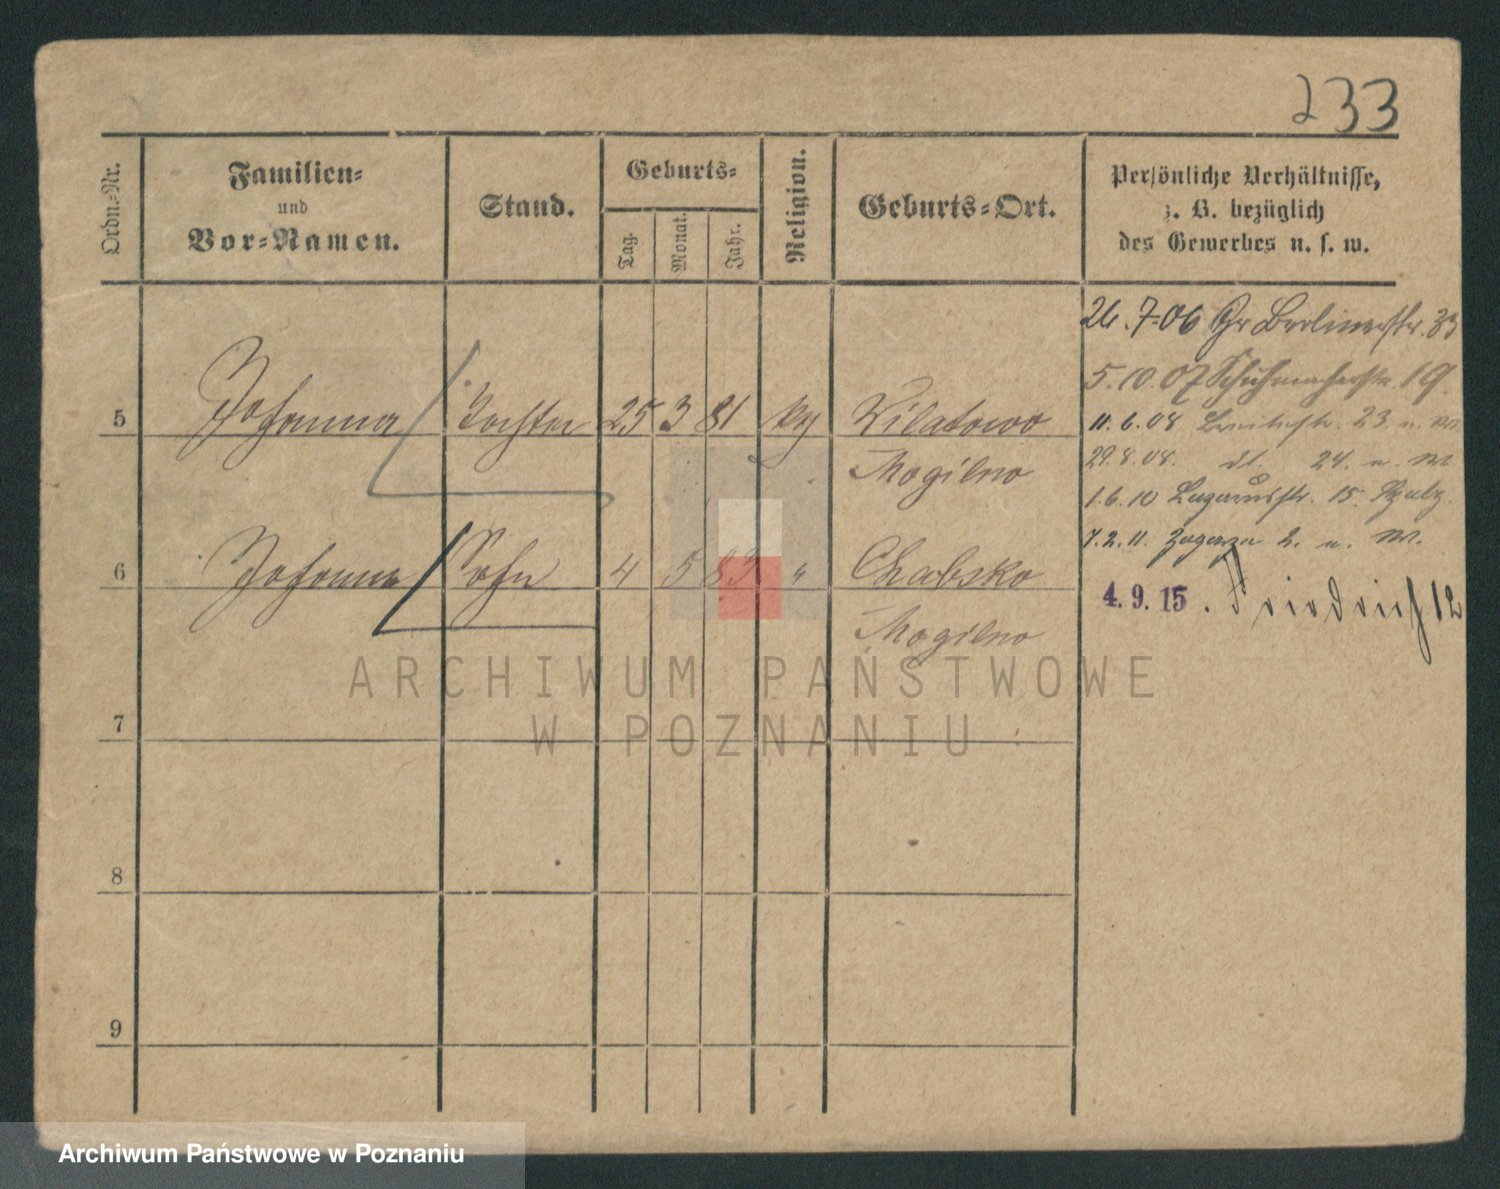 233
Ordn.-Nr.
Familien-
und
Vor-Namen.
Stand.
Geburts-
Tag.
Monat.
Jahr.
Religion.
Geburts-Ort.
Persönliche Verhältnisse,
z. B. bezüglich
des Gewerbes u. s. w.
26.7.06 Gr Berlinerstr. 33
5.10.07 Schuhmacherstr 19
5 Johanna Tochter 25 3 81 Wilatowo
Mogilno
11.6.08 Breitestr. 23. u.
29.8.08. 24. u.
1.6.10 Lazarusstr. 15.
7.2.11. 2. u. W.
6 Sohn 4 5 83 " Chabsko
Mogilno
4.9.15. Friedrich 12
ARCHIWUM PAŃSTWOWE
W POZNANIU
7
8
9
Archiwum Państwowe w Poznaniu